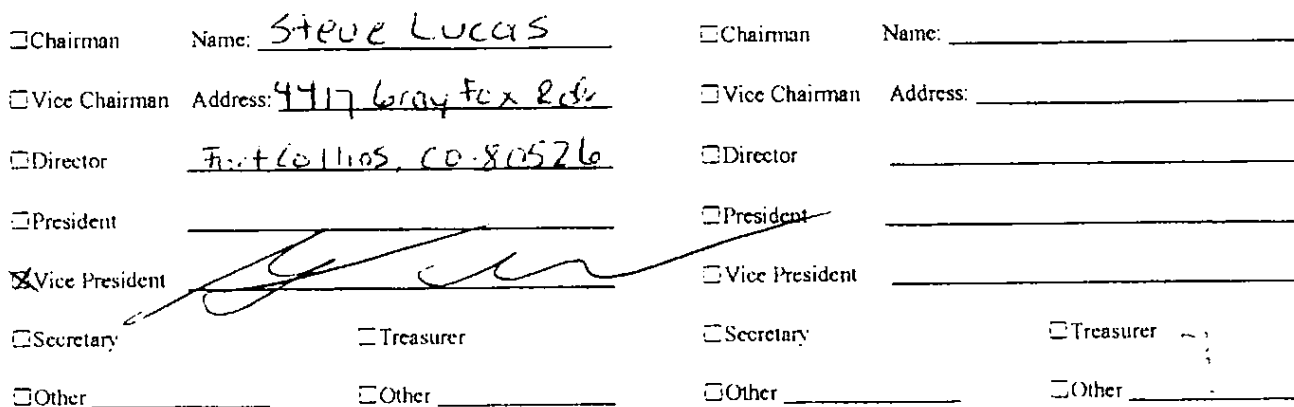 ☐Chairman Name: Steve Lucas
☐Vice Chairman Address: 4417 Gray Fox Rd
☐Director Fort Collins, CO 80526
☐President
☒Vice President
☐Secretary ☐Treasurer
☐Other ☐Other
☐Chairman Name:
☐Vice Chairman Address:
☐Director
☐President
☐Vice President
☐Secretary ☐Treasurer
☐Other ☐Other